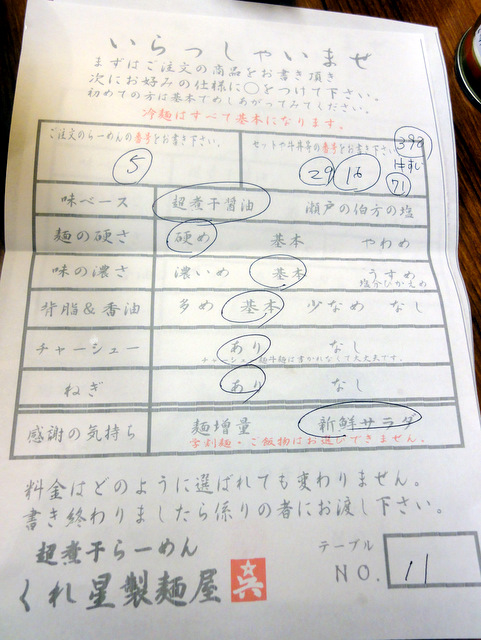 いらっしゃいませ
まずはご注文の商品をお書き頂き
次にお好みの仕様に○をつけて下さい。
初めての方は基本でめしあがってみてください。
冷麺はすべて基本になります。
ご注文のらーめんの番号をお書き下さい。 セットや牛丼等の番号をお書き下さい。
5 29 16 71
味ベース 超煮干醤油 瀬戸の伯方の塩
麺の硬さ 硬め 基本 やわめ
味の濃さ 濃いめ 基本 うすめ
塩分ひかえめ
背脂&香油 多め 基本 少なめ なし
チャーシュー あり なし
チャーシュー麺丼麺は書かれなくて大丈夫です。
ねぎ あり なし
感謝の気持ち 麺増量 新鮮サラダ
学割麺・ご飯物はお選びできません。
料金はどのように選ばれても変わりません。
書き終わりましたら係りの者にお渡し下さい。
超煮干らーめん
くれ星製麺屋 呉
テーブル
NO. 11